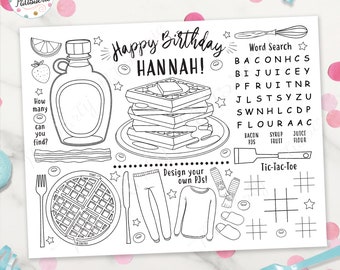 Happy Birthday
HANNAH!
Word Search
BACONHCS
BIJUICEY
PFRUITNR
JLSTSYZU
SWNHLCDP
FLOURAAC
BACON SYRUP JUICE
PJS FRUIT FLOUR
How
many
can
you
find?
Design your
own PJs!
Tic-Tac-Toe